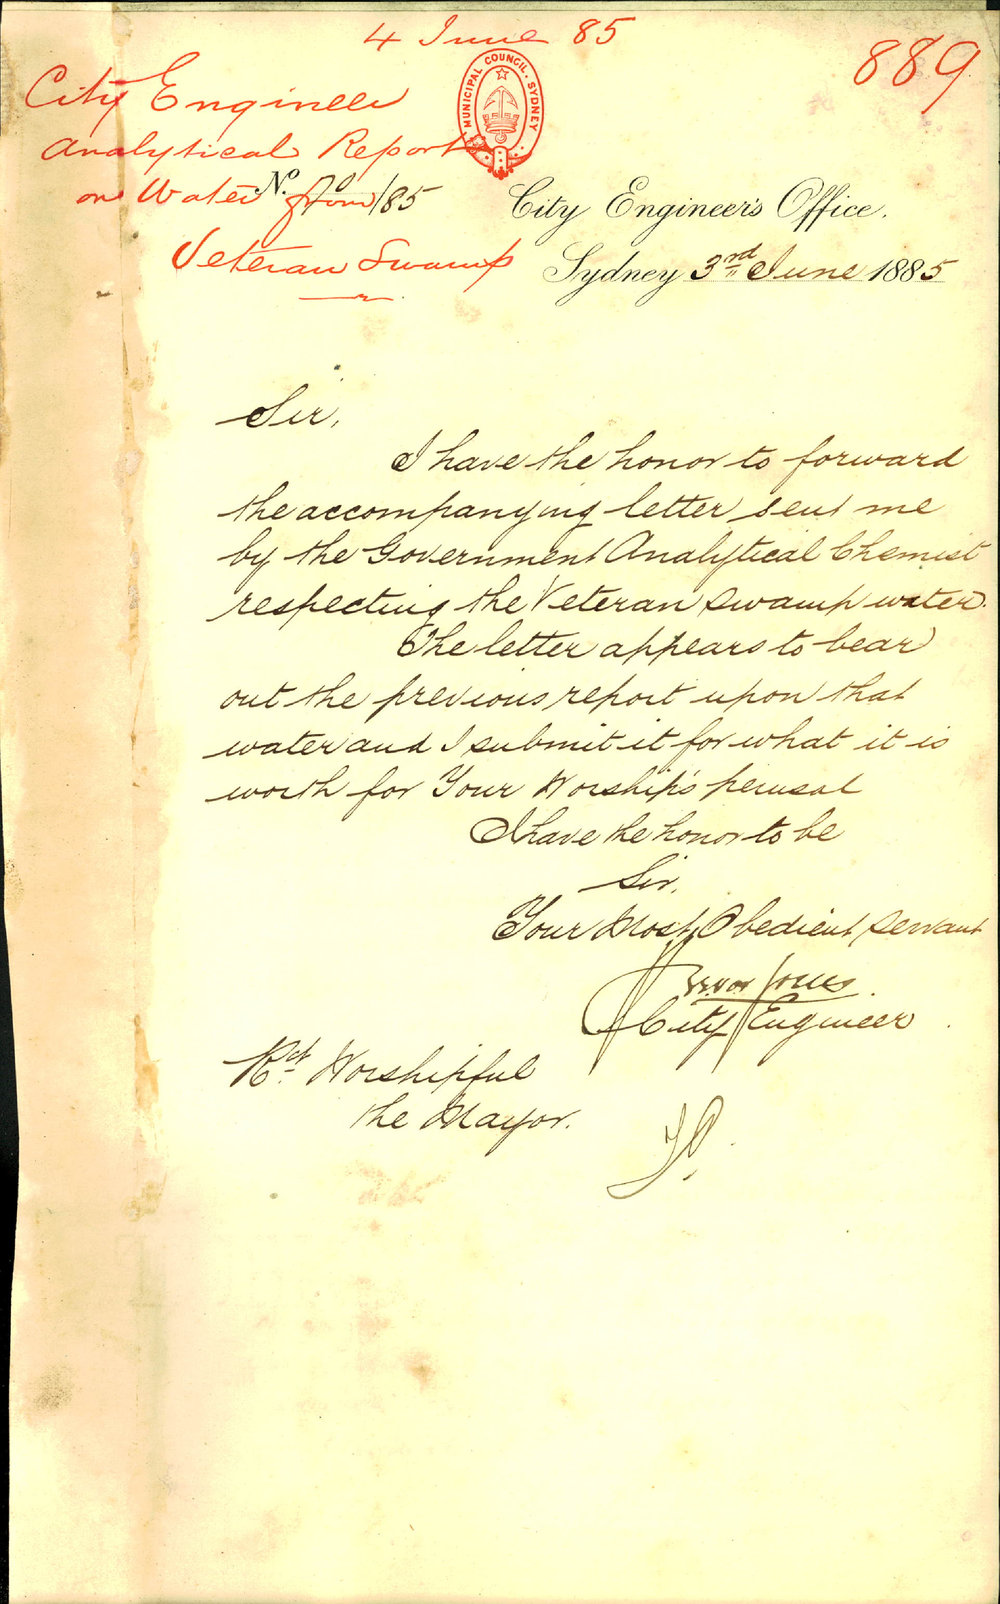 4 June 85
889
City Engineer
Analytical Report
on Water from
Veteran Swamp
MUNICIPAL COUNCIL. SYDNEY
No. 70/85
City Engineer's Office.
Sydney 3rd June 1885
Sir,
I have the honor to forward
the accompanying letter sent me
by the Government Analytical Chemist
respecting the Veteran Swamp water.
The letter appears to bear
out the previous report upon that
water and I submit it for what it is
worth for Your Worship's perusal
I have the honor to be
Sir,
Your Most Obedient Servant
Trevor Jones
City Engineer
Rt. Worshipful
the Mayor.